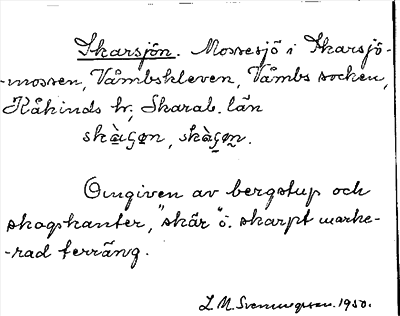 Skarsjön. Mossesjö i Skarsjö-
-mossen, Våmbskleven, Våmbs socken,
Kåkinds hr, Skarab. län
Omgiven av bergstup och
skogskanter, "skär" o. skarpt marke-
-rad terräng.
L M. Svennungsson. 1950.